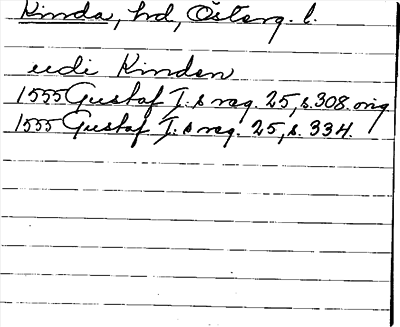 Kinda, hd, Österg. l.
uudi Kinden
1555 Gustaf I:s reg. 25, s. 308. orig
1555 Gustaf I:s reg. 25, s. 334.